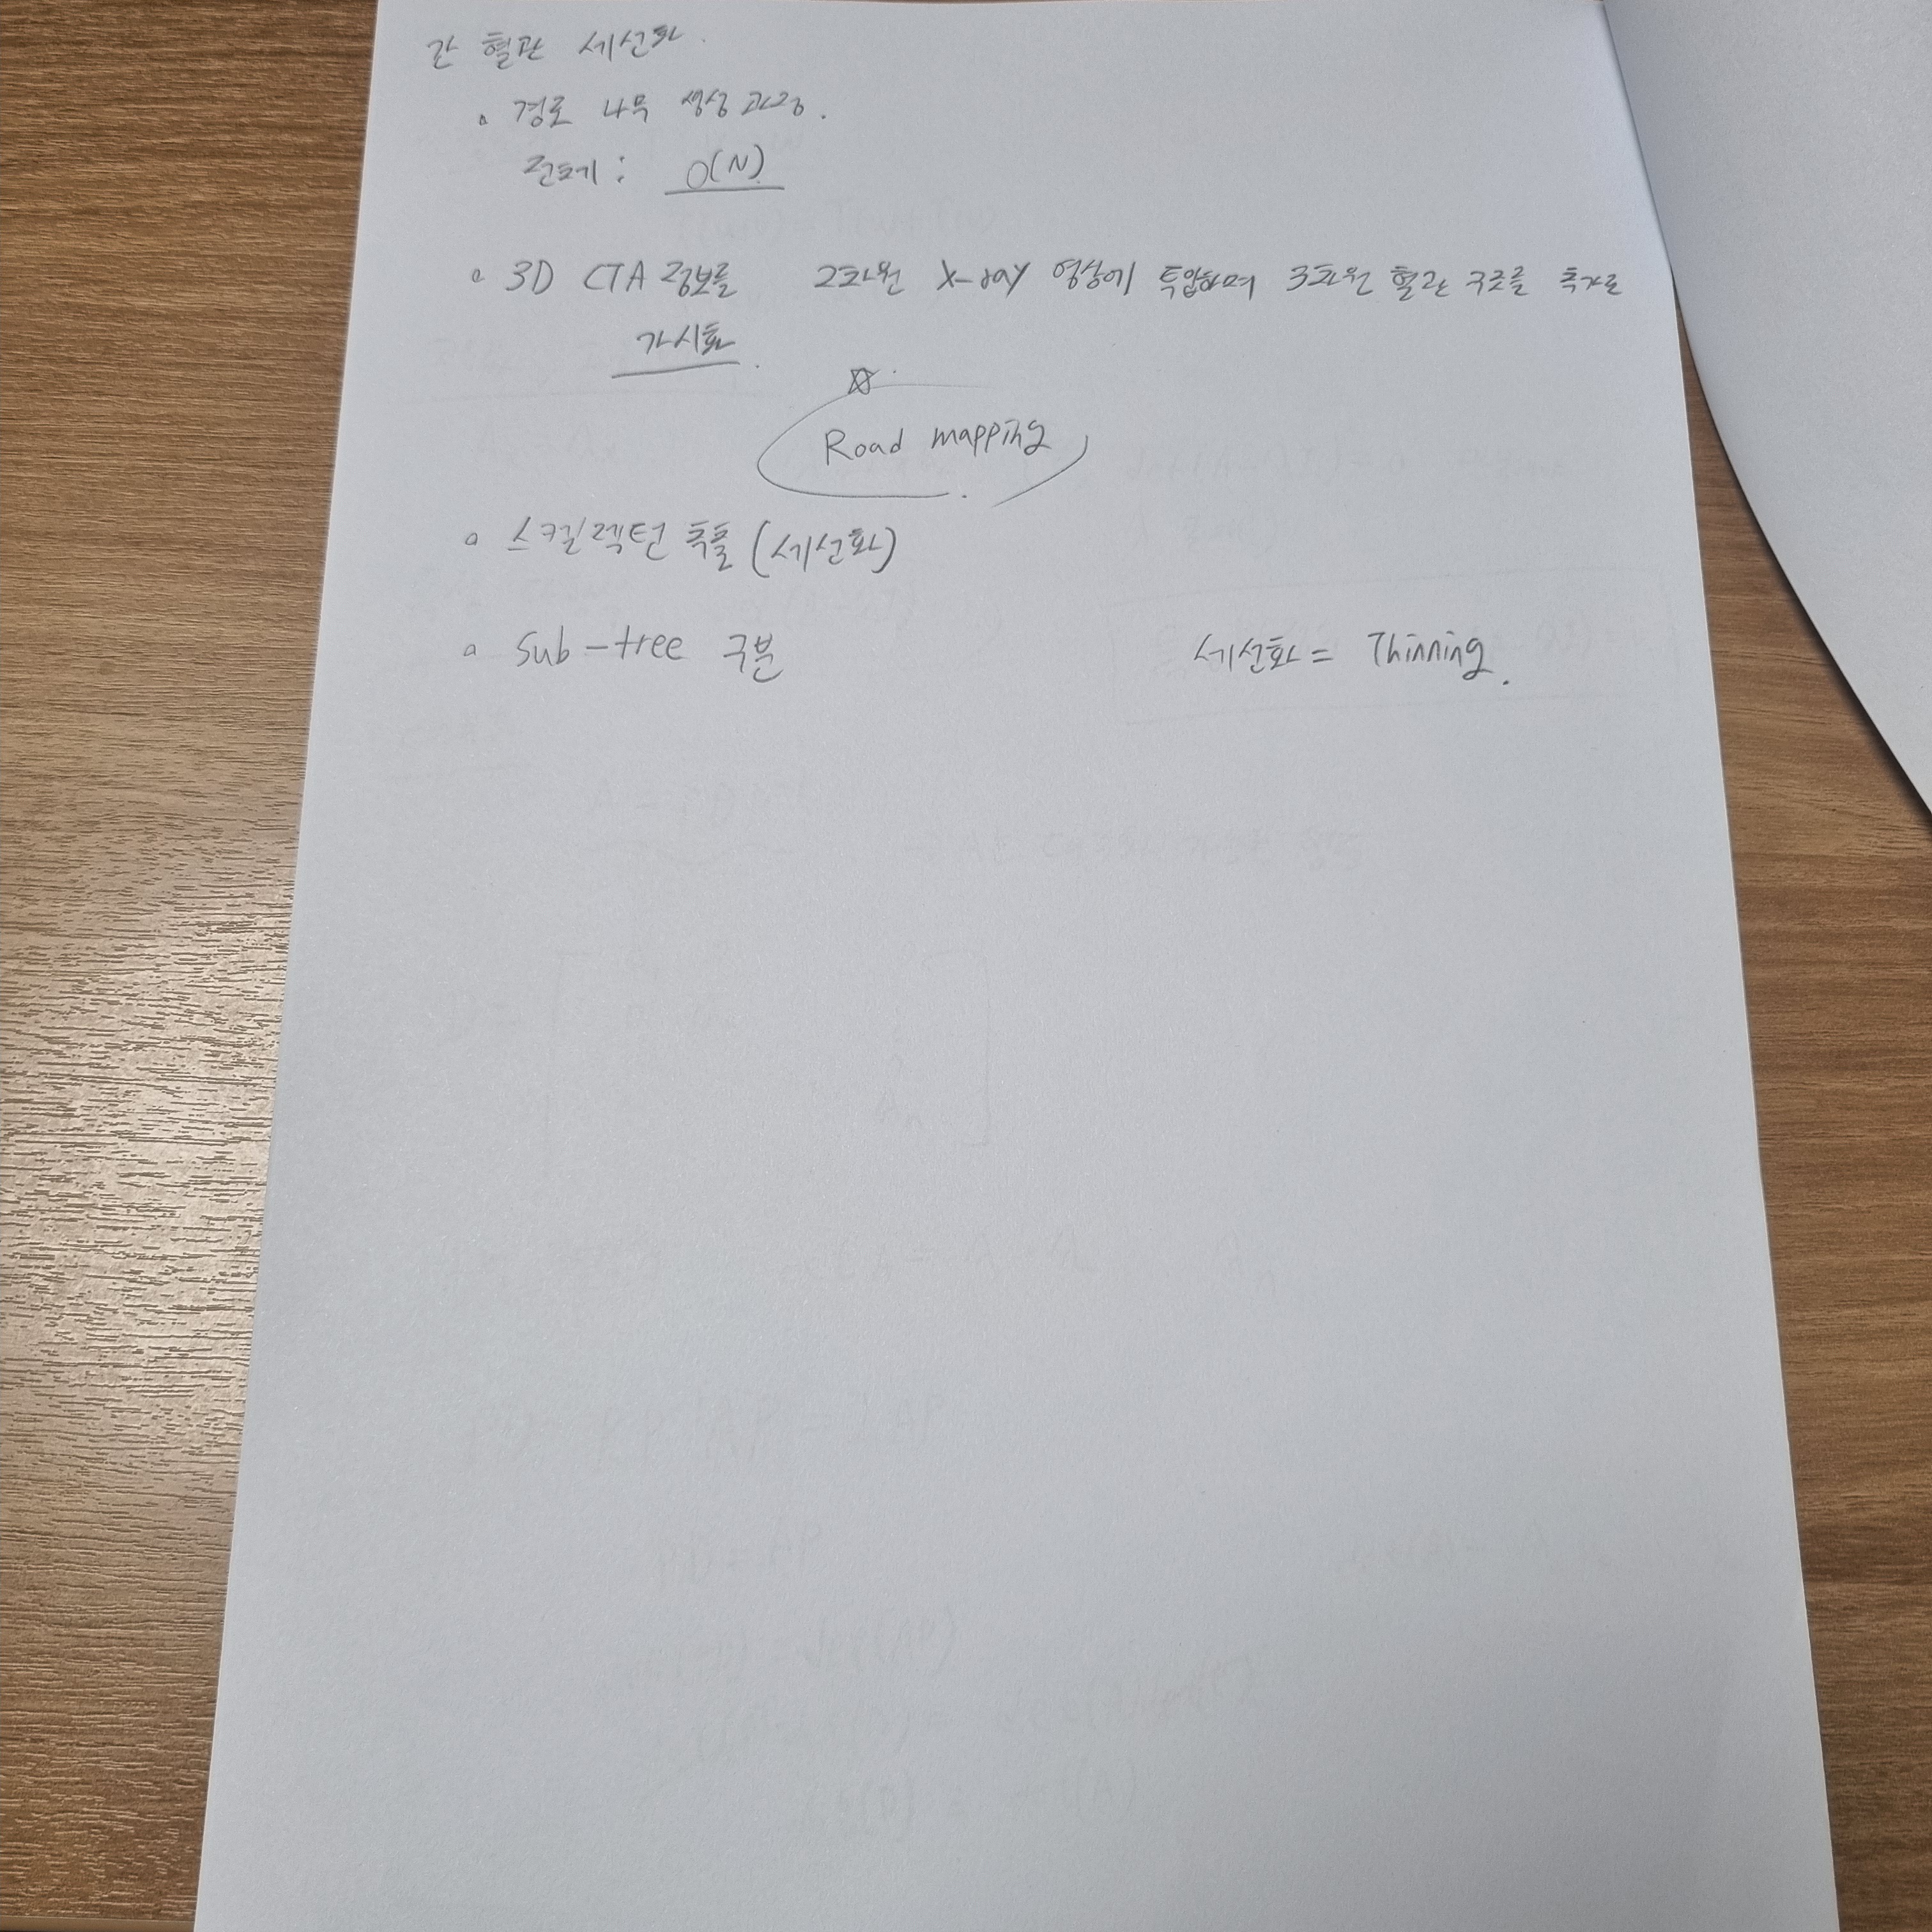 간 혈관 세선화.
경로 나무 생성 과정.
전체 : O(N)
3D CTA 정보를 2차원 X-ray 영상에 투압하여 3차원 혈관 구조를 추가로
가시화.
Road mapping
스킬렉턴 추출 (세선화)
sub-tree 구분
세선화 = Thinning.